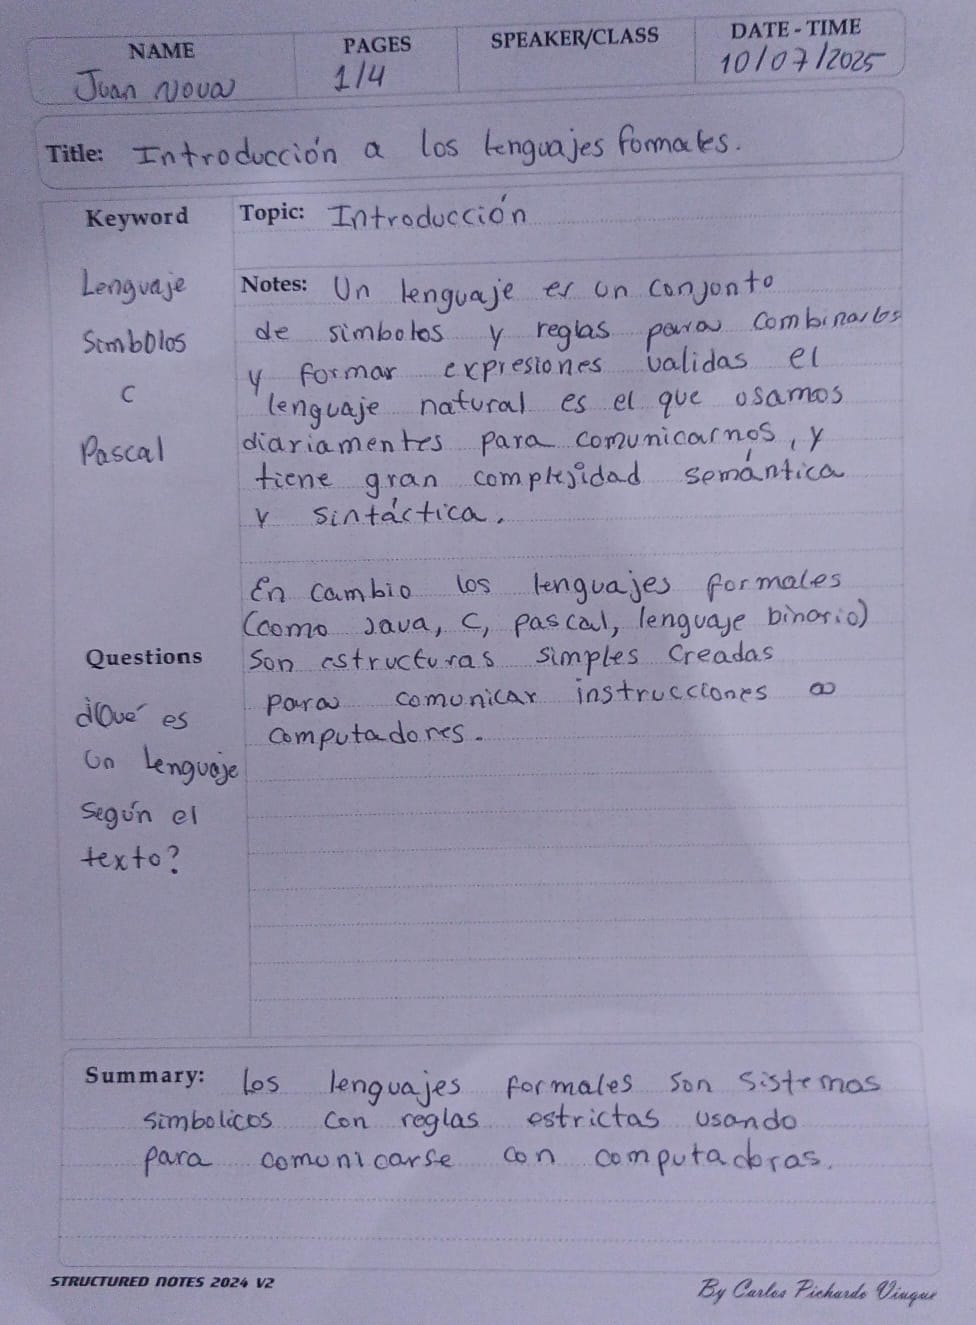 NAME
Juan Nova
PAGES
1/4
SPEAKER/CLASS
DATE - TIME
10/07/2025
Title: Introducción a los lenguajes formales.
Keyword
Lenguaje
Simbolos
C
Pascal
Topic: Introducción
Notes: Un lenguaje es un conjunto
de simbolos y reglas para combinarlos
y formar expresiones validas el
lenguaje natural es el que usamos
diariamentes para comunicarnos, y
tiene gran complejidad semántica
y sintáctica.
En cambio los lenguajes formales
(como Java, C, pascal, lenguaje binario)
son estructuras simples creadas
para comunicar instrucciones a
computadores.
Questions
¿Qué es
un lenguaje
según el
texto?
Summary: Los lenguajes formales son sistemas
simbolicos con reglas estrictas usando
para comunicarse con computadoras.
STRUCTURED NOTES 2024 V2
By Carlos Pichardo Viuque